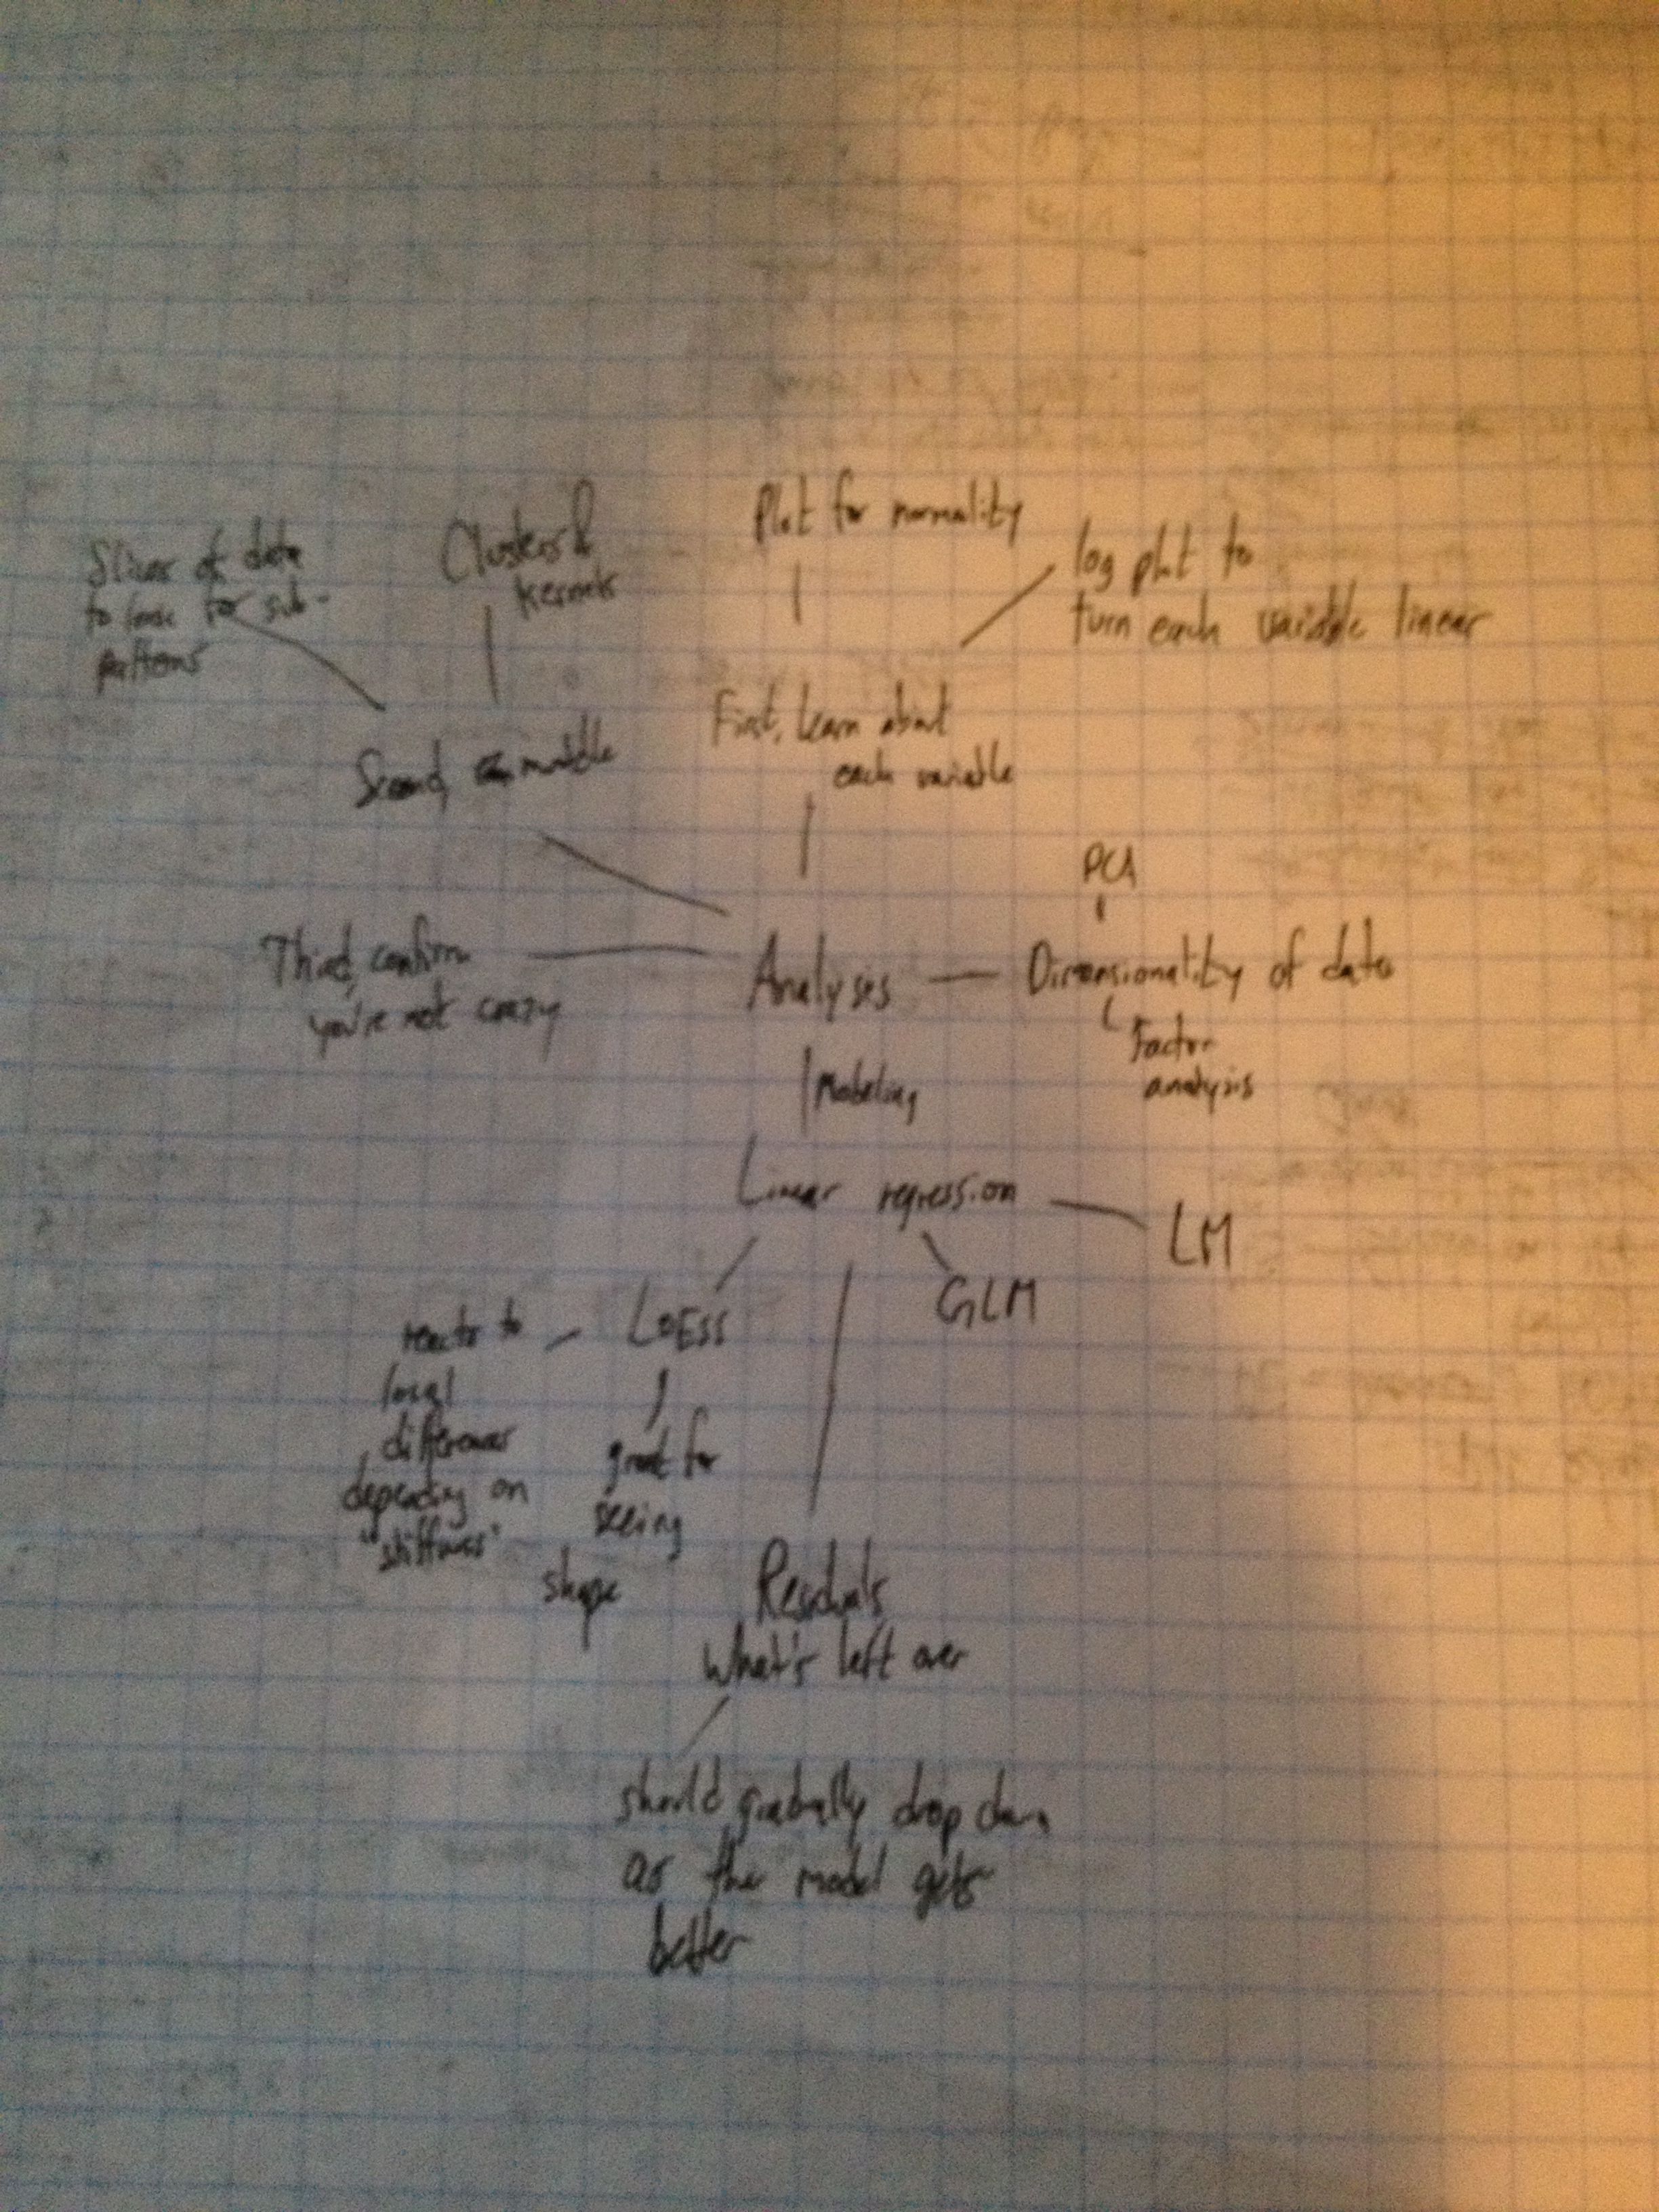 Plot for normality
Slices of data
to look for sub-
patterns
Clusters &
kernels
log plot to
turn each variable linear
First, learn about
each variable
Second,
PCA
Third, confirm
you're not crazy
Analysis
Dimensionality of data
Factor
analysis
Modeling
Linear regression
LM
GLM
LOESS
reacts to
local
differences
depending on
"stiffness"
great for
seeing
shape
Residuals
What's left over
should gradually drop down
as the model gets
better